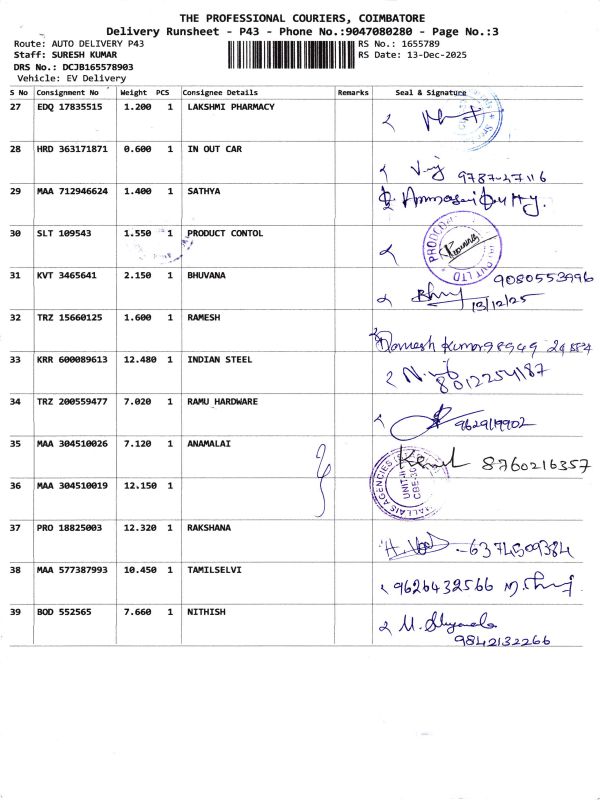 THE PROFESSIONAL COURIERS, COIMBATORE
Delivery Runsheet - P43 - Phone No.:9047080280 - Page No.:3
Route: AUTO DELIVERY P43 RS No.: 1655789
Staff: SURESH KUMAR RS Date: 13-Dec-2025
DRS No.: DCJB165578903
Vehicle: EV Delivery
S No Consignment No Weight PCS Consignee Details Remarks Seal & Signature
27 EDQ 17835515 1.200 1 LAKSHMI PHARMACY
28 HRD 363171871 0.600 1 IN OUT CAR
9787-27116
29 MAA 712946624 1.400 1 SATHYA
30 SLT 109543 1.550 1 PRODUCT CONTOL
31 KVT 3465641 2.150 1 BHUVANA 9080553996
13/12/25
32 TRZ 15660125 1.600 1 RAMESH
Ramesh Kumar 98949
33 KRR 600089613 12.480 1 INDIAN STEEL
8012254187
34 TRZ 200559477 7.020 1 RAMU HARDWARE
9629119902
35 MAA 304510026 7.120 1 ANAMALAI
8760216357
36 MAA 304510019 12.150 1
37 PRO 18825003 12.320 1 RAKSHANA
6374509384
38 MAA 577387993 10.450 1 TAMILSELVI
9626432566
39 BOD 552565 7.660 1 NITHISH
9842132266